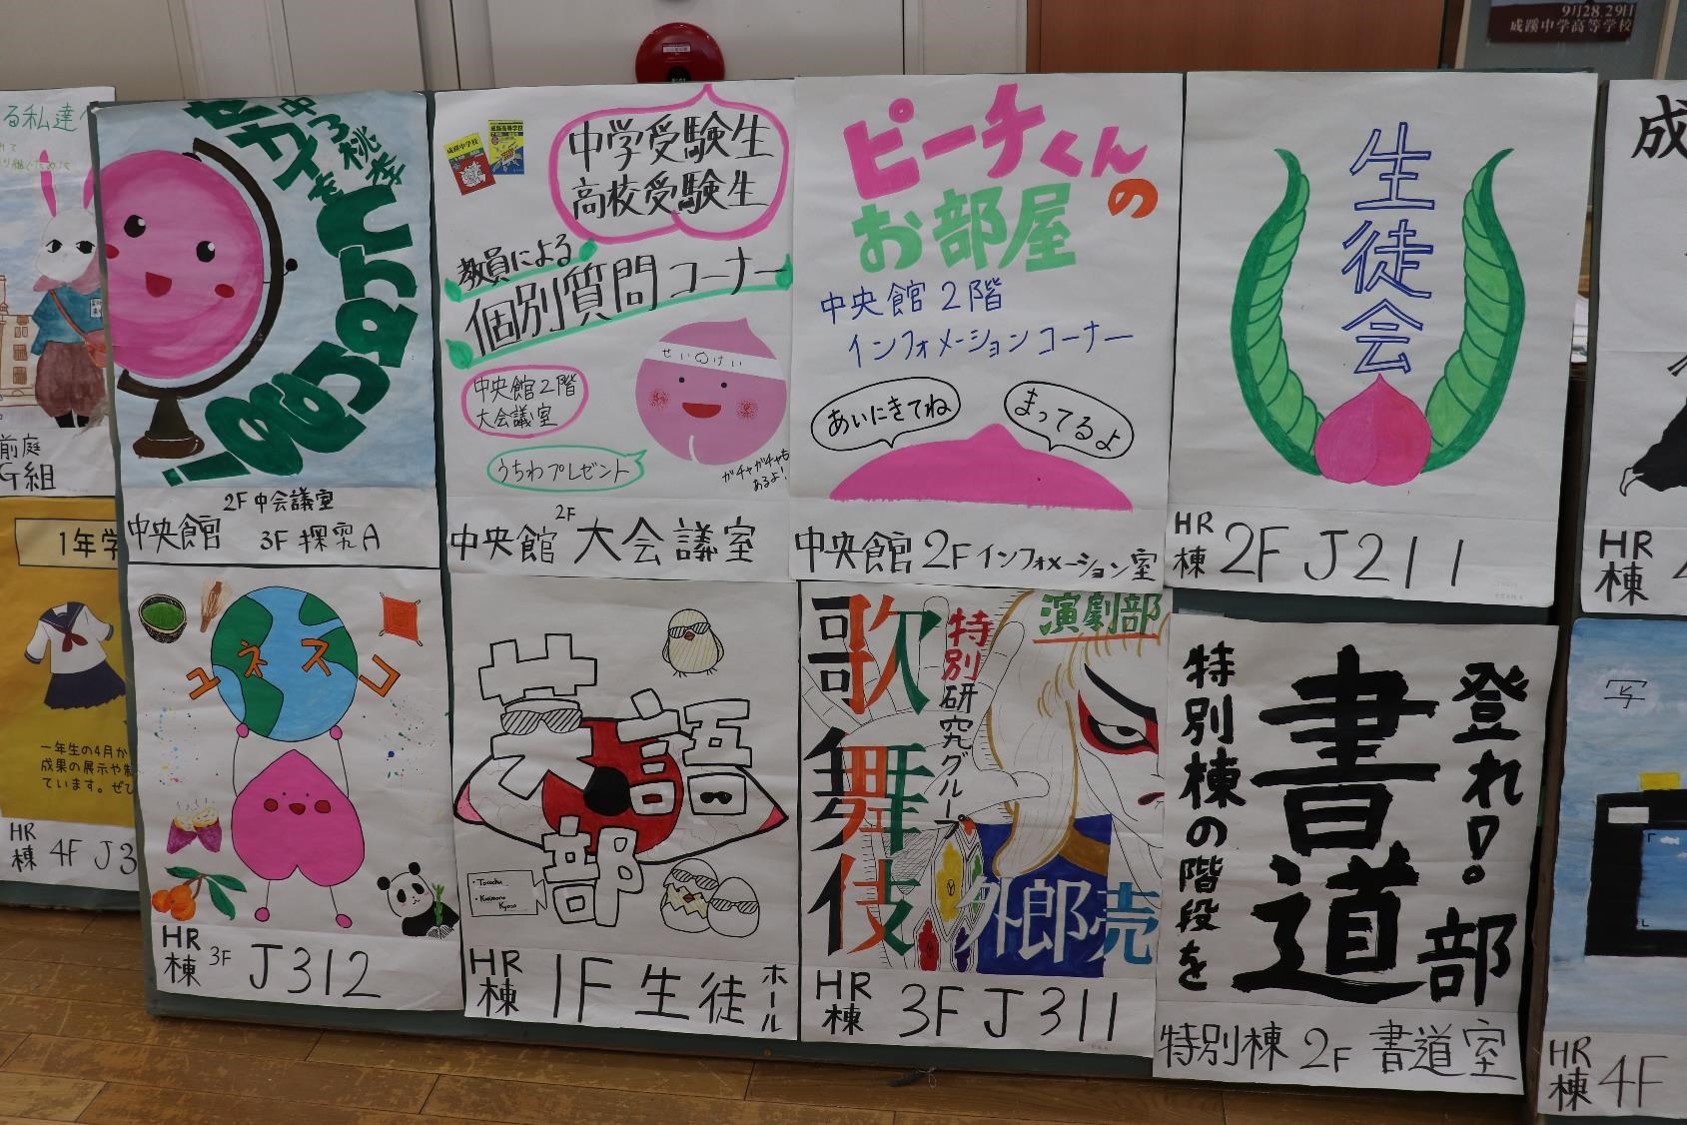 9月28,29日
成蹊中学高等学校
る私達
前庭
G組
せかいをつなぐ
中つ桃李
2F中会議室
中央館 3F探究A
成蹊中学校
成蹊高等学校
中学受験生
高校受験生
教員による
個別質問コーナー
せいけい
中央館2階
大会議室
うちわプレゼント
ガチャガチャも
あるよ!
中央館 2F 大会議室
ピーチくん
の
お部屋
中央館2階
インフォメーションコーナー
あいにきてね
まってるよ
中央館2Fインフォメーション室
生徒会
HR棟 2F J211
成
HR棟
1年学
一年生の4月か
成果の展示や制
ています。ぜひ
HR棟 4F J3
ユネスコ
HR棟 3F J312
英語部
HR棟 1F 生徒ホール
歌舞伎
特別研究グループ
演劇部
外郎売
HR棟 3F J311
登れ!。
書道部
特別棟の階段を
特別棟 2F 書道室
写
HR棟 4F